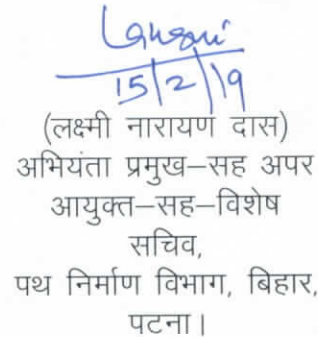 15/2/19
(लक्ष्मी नारायण दास)
अभियंता प्रमुख–सह अपर
आयुक्त–सह–विशेष
सचिव,
पथ निर्माण विभाग, बिहार,
पटना।